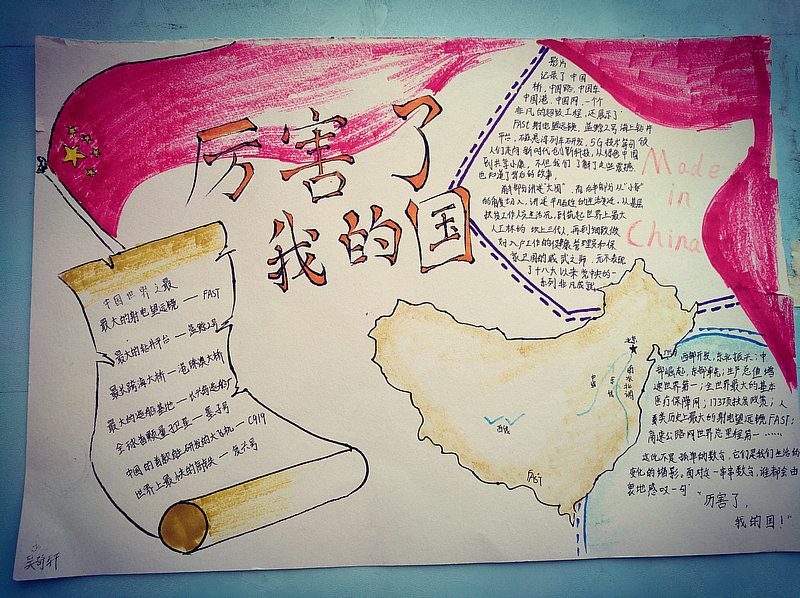 厉害了
我的国
中国世界之最
最大的射电望远镜 — FAST
最大的钻井平台 — 蓝鲸2号
最长跨海大桥 — 港珠澳大桥
最大的造船基地 — 长兴岛造船厂
全球首颗量子卫星 — 墨子号
中国的首款自研发的大飞机 — C919
世界上最快的高铁 — 复兴号
影片
记录了中国
桥,中国路,中国车
中国港,中国网,一个
非凡的超级工程,还展示了
FAST射电望远镜,蓝鲸2号海上钻井
平台,磁悬浮列车研发,5G技术等引领
人们走向新时代的创新科技,从绿色中国
到共享小康,不但我们了解了这些震撼
也知道了背后的故事,
前半部分讲述"大国",而后半部为从"小家"
的角度切入,讲述平凡百姓的生活变迁,从基层
扶贫工作人员生活况,到筑起世界上最大
人工林的 坝上三代人,再到细致做
对入户工作的健康管理员和保
家卫国的威武之师,无不表现
了十八大以来党中央的一
系列非凡成就
Made
in
China
北京
南水北调
东线
中线
西线
FAST
西部开发,东北振兴;中
部崛起,东部率先;生产总值增
速世界第一;全世界最大的基本
医疗保障网;1737项扶贫政策;人
类历史上最大的射电望远镜FAST;
高速公路网世界总里程第一……
这绝不是孤单的数字,它们是我们生活的
变化的缩影。面对这一串串数字,谁都会由
衷地感叹一句"
厉害了,
我的国!"